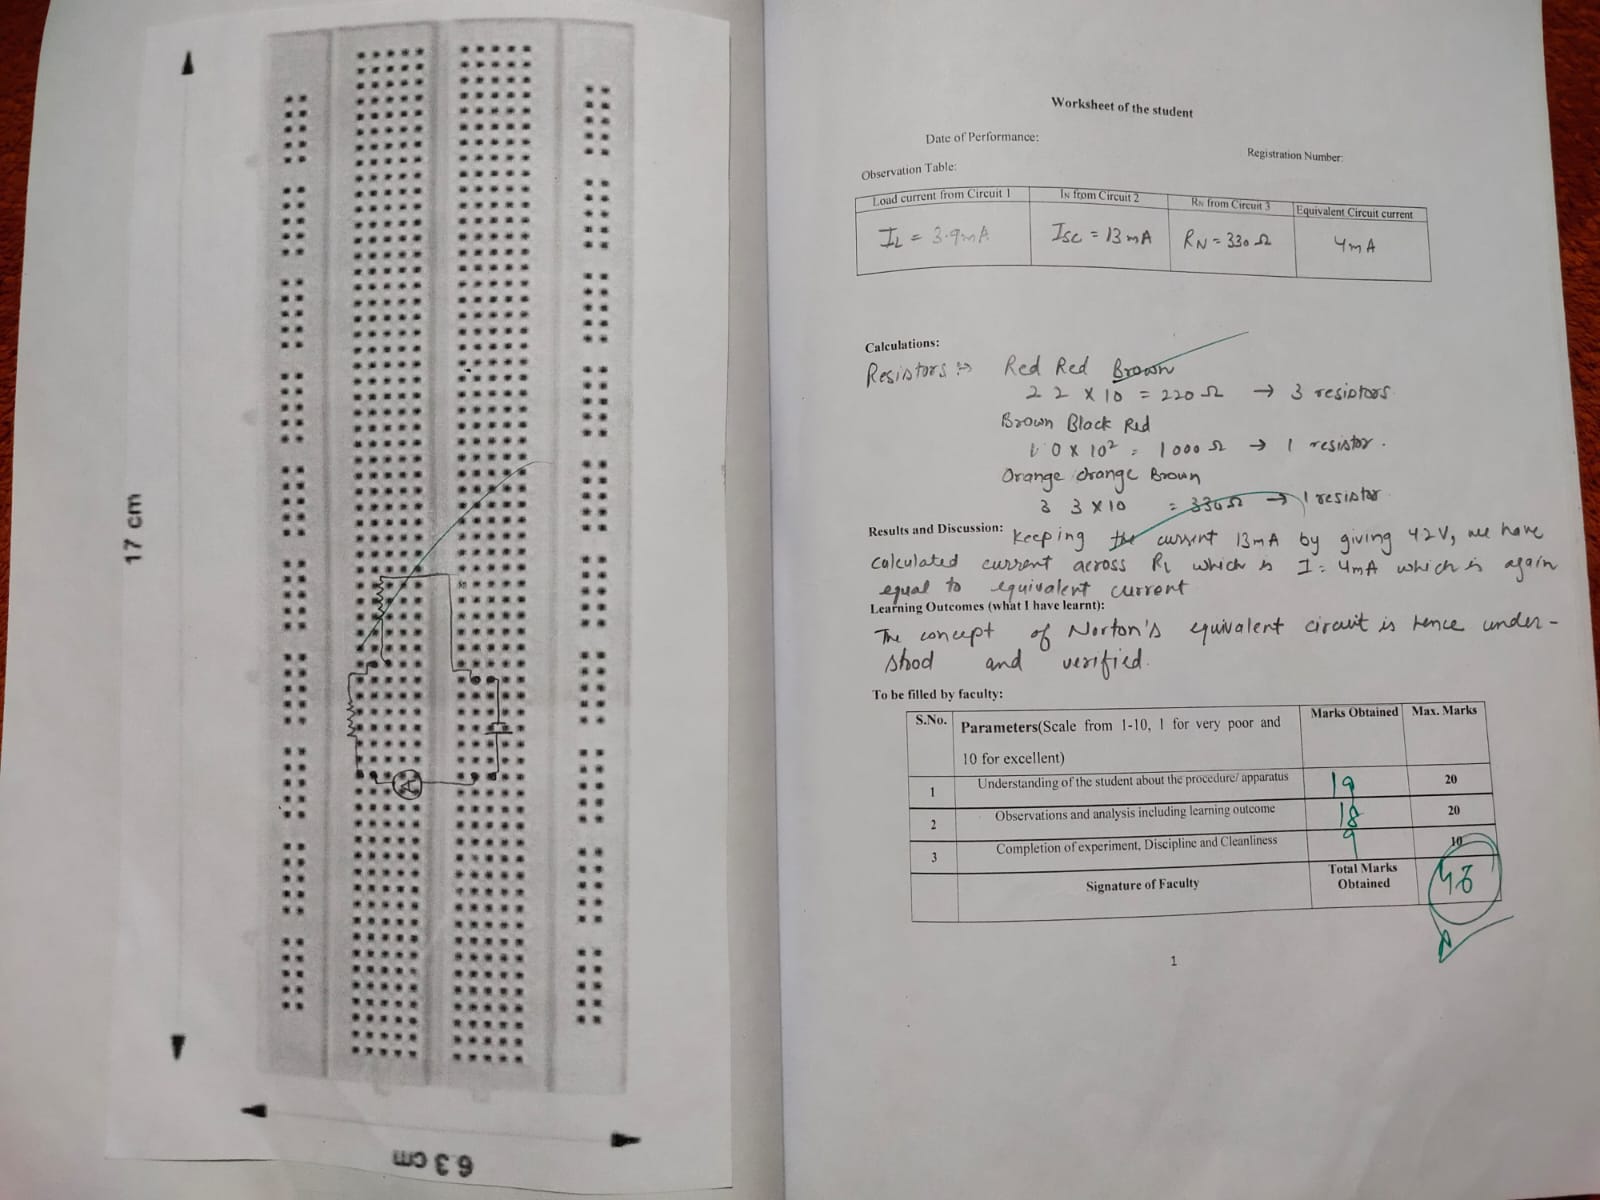 17 cm
6.3 cm
A
Worksheet of the student
Date of Performance:
Registration Number:
Observation Table:
Load current from Circuit 1 IN from Circuit 2 RN from Circuit 3 Equivalent Circuit current
IL = 3.9mA ISC = 13 mA RN = 330 Ω 4mA
Calculations:
Resistors :→ Red Red Brown
2 2 x 10 = 220 Ω → 3 resistors
Brown Black Red
1 0 x 10² = 1000 Ω → 1 resistor.
Orange Orange Brown
3 3 x 10 = 330Ω → 1 resistor
Results and Discussion: Keeping the current 13mA by giving 42V, we have
calculated current across RL which is I = 4mA which is again
equal to equivalent current
Learning Outcomes (what I have learnt):
The concept of Norton's equivalent circuit is hence under-
stood and verified.
To be filled by faculty:
S.No. Parameters(Scale from 1-10, 1 for very poor and Marks Obtained Max. Marks
10 for excellent)
1 Understanding of the student about the procedure/ apparatus 19 20
2 Observations and analysis including learning outcome 18 20
3 Completion of experiment, Discipline and Cleanliness 9 10
Signature of Faculty Total Marks
Obtained 46
1